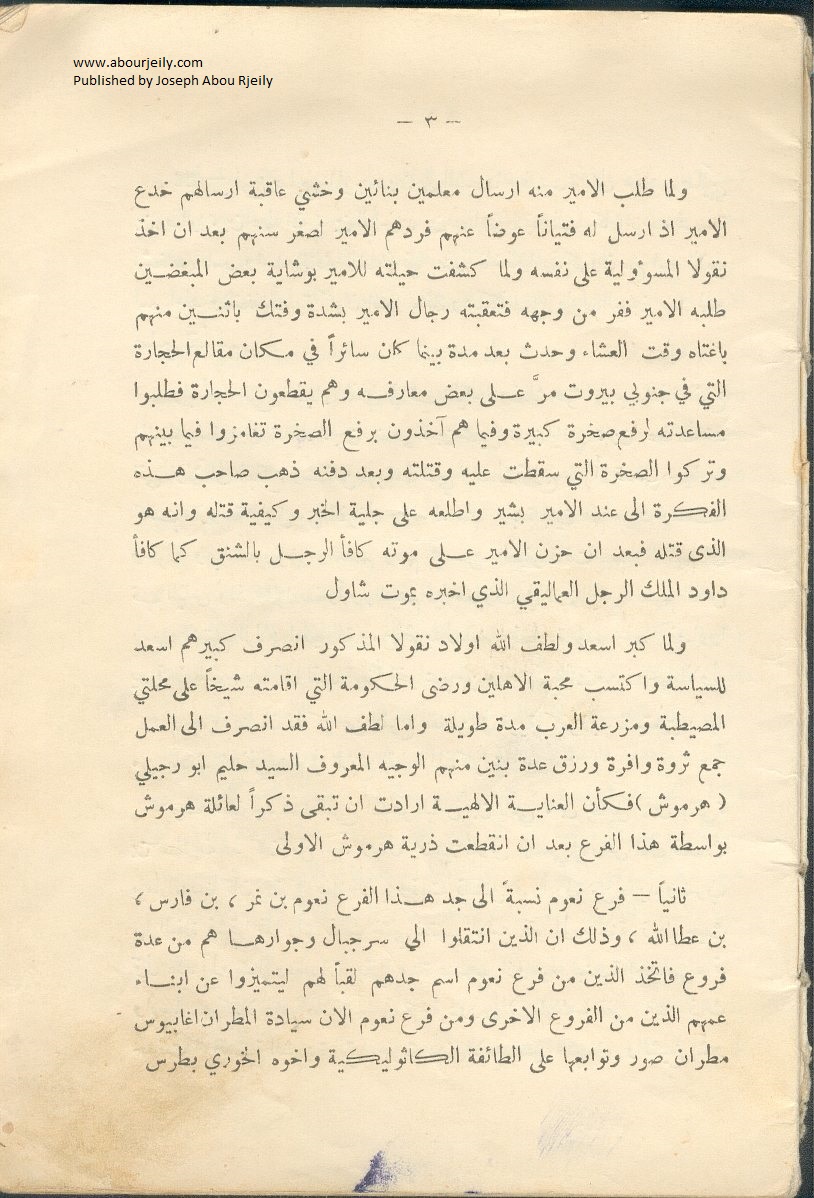 www.abourjeily.com
Published by Joseph Abou Rjeily
— ٣ —
ولما طلب الامير منه ارسال معلمين بنائين وخشي عاقبة ارسالهم خدع
الامير اذ ارسل له فتياناً عوضاً عنهم فردهم الامير لصغر سنهم بعد ان اخذ
نقولا المسؤولية على نفسه ولما كشفت حيلته للامير بوشاية بعض المبغضين
طلبه الامير ففر من وجهه فتعقبته رجال الامير بشدة وفتك باثنين منهم
باغتاه وقت العشاء وحدث بعد مدة بينما كان سائراً في مكان مقالع الحجارة
التي في جنوبي بيروت مرَّ على بعض معارفه وهم يقطعون الحجارة فطلبوا
مساعدته لرفع صخرة كبيرة وفيما هم آخذون برفع الصخرة تغامزوا فيما بينهم
وتركوا الصخرة التي سقطت عليه وقتلته وبعد دفنه ذهب صاحب هذه
الفكرة الى عند الامير بشير واطلعه على جلية الخبر وكيفية قتله وانه هو
الذى قتله فبعد ان حزن الامير على موته كافأ الرجل بالشنق كما كافأ
داود الملك الرجل العماليقي الذي اخبره بموت شاول
ولما كبر اسعد ولطف الله اولاد نقولا المذكور انصرف كبيرهم اسعد
للسياسة واكتسب محبة الاهلين ورضى الحكومة التي اقامته شيخاً على محلتي
المصيطبة ومزرعة العرب مدة طويلة واما لطف الله فقد انصرف الى العمل
جمع ثروة وافرة ورزق عدة بنين منهم الوجيه المعروف السيد حليم ابو رجيلي
( هرموش ) فكأن العناية الالهية ارادت ان تبقى ذكراً لعائلة هرموش
بواسطة هذا الفرع بعد ان انقطعت ذرية هرموش الاولى
ثانياً — فرع نعوم نسبةً الى جد هذا الفرع نعوم بن نمر ، بن فارس ،
بن عطا الله ، وذلك ان الذين انتقلوا الي سرجبال وجوارها هم من عدة
فروع فاتخذ الذين من فرع نعوم اسم جدهم لقباً لهم ليتميزوا عن ابناء
عمهم الذين من الفروع الاخرى ومن فرع نعوم الان سيادة المطران اغابيوس
مطران صور وتوابعها على الطائفة الكاثوليكية واخوه الخوري بطرس